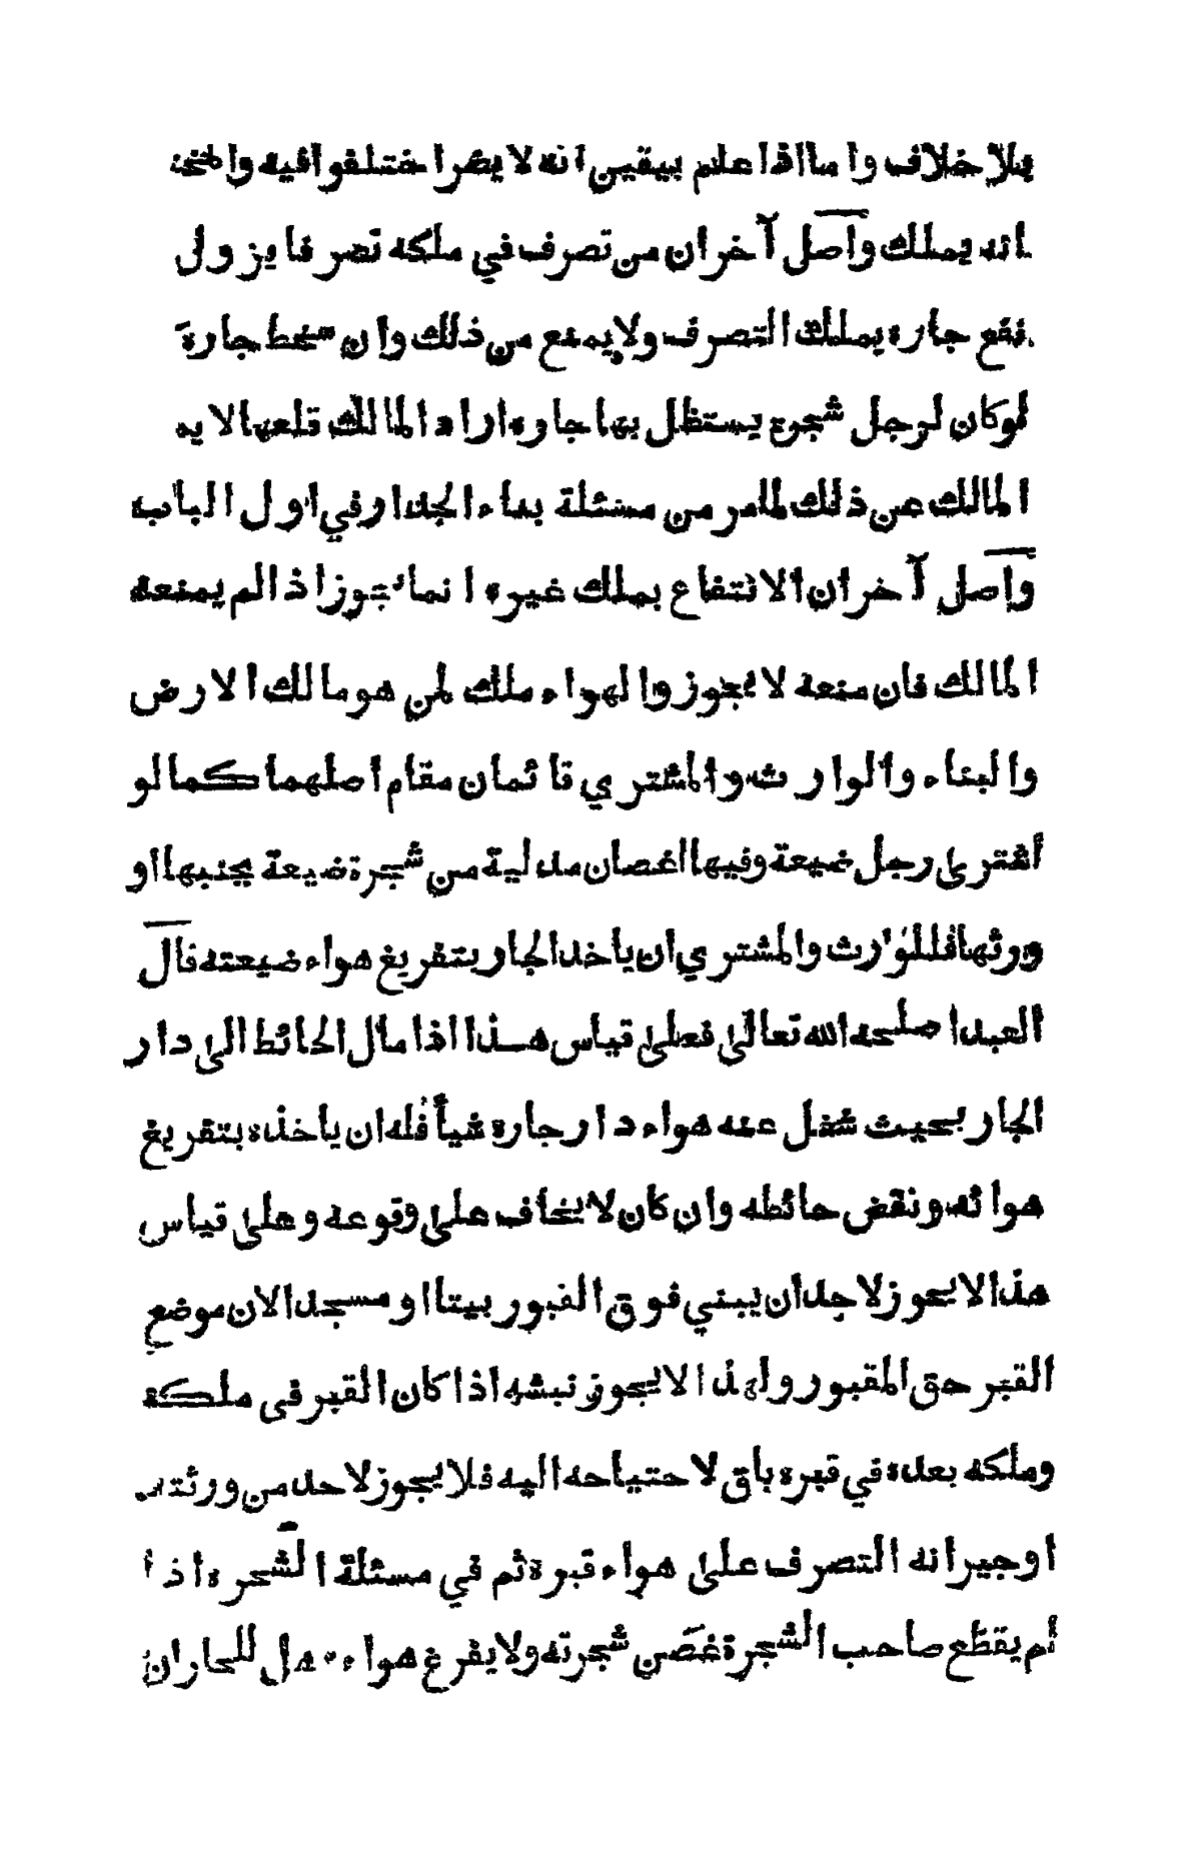 بلا خلاف واما اذا علم بيقين انه لا يضر اختلفوا فيه والمخت
انه يملك واصل آخر ان من تصرف في ملكه تصرفا يزول
نفع جاره يملك التصرف ولا يمنع من ذلك وان سخط جاره
لوكان لرجل شجرة يستظل بها جاره اراد المالك قلعها لا يم
المالك عن ذلك لما مر من مسئلة بناء الجدار في اول الباب
واصل آخر ان الانتفاع بملك غيره انما يجوز اذا لم يمنعه
المالك فان منعه لا يجوز والهواء ملك لمن هو مالك الارض
والبناء والوارث والمشتري قائمان مقام اصلهما كما لو
اشترى رجل ضيعة وفيها اغصان مدلية من شجرة ضيعة بجنبها او
ورثها فللوارث والمشتري ان ياخذ الجار بتفريغ هواء ضيعته قال
العبد اصلحه الله تعالى فعلى قياس هذا اذا مال الحائط الى دار
الجار بحيث شغل عنه هواء دار جاره شيأ فله ان ياخذه بتفريغ
هوائه ونقض حائطه وان كان لا يخاف على وقوعه وعلى قياس
هذا لا يجوز لاحد ان يبني فوق القبور بيتا او مسجدا لان موضع
القبر حق المقبور ولهذا لا يجوز نبشه اذا كان القبر في ملكه
وملكه بعده في قبره باق لاحتياجه اليه فلا يجوز لاحد من ورثته
او جيرانه التصرف على هواء قبره ثم في مسئلة الشجرة اذا
لم يقطع صاحب الشجرة غصن شجرته ولا يفرغ هواءه هل للجار ان